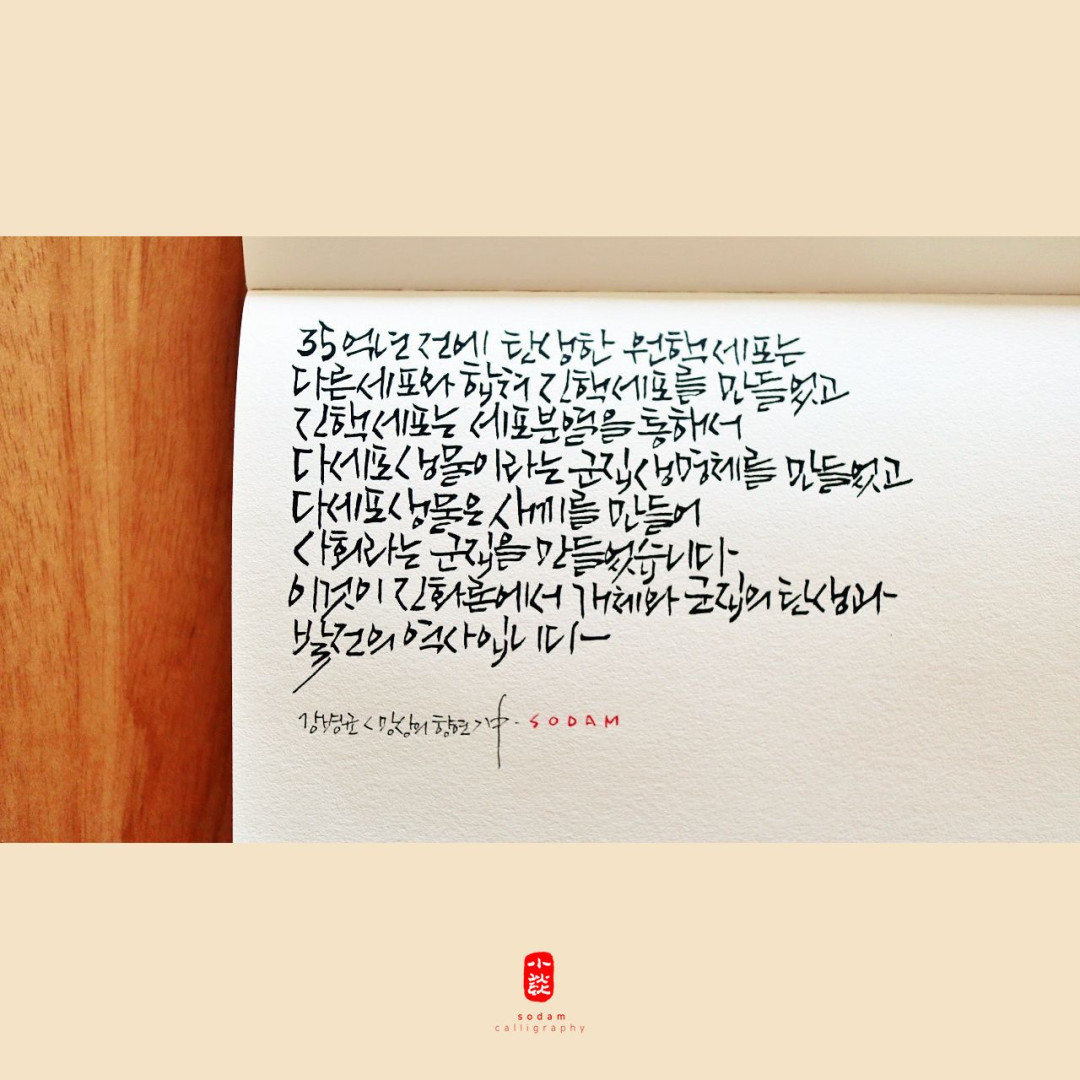 35억년 전에 탄생한 원핵세포는
다른세포와 합쳐 진핵세포를 만들었고
진핵세포는 세포분열을 통해서
다세포생물이라는 군집생명체를 만들었고
다세포생물은 새끼를 만들어
사회라는 군집을 만들었습니다
이것이 진화론에서 개체와 군집의 탄생과
발전의 역사입니다
강병균 <망상의 향연> 中 - SODAM
小談
sodam
calligraphy